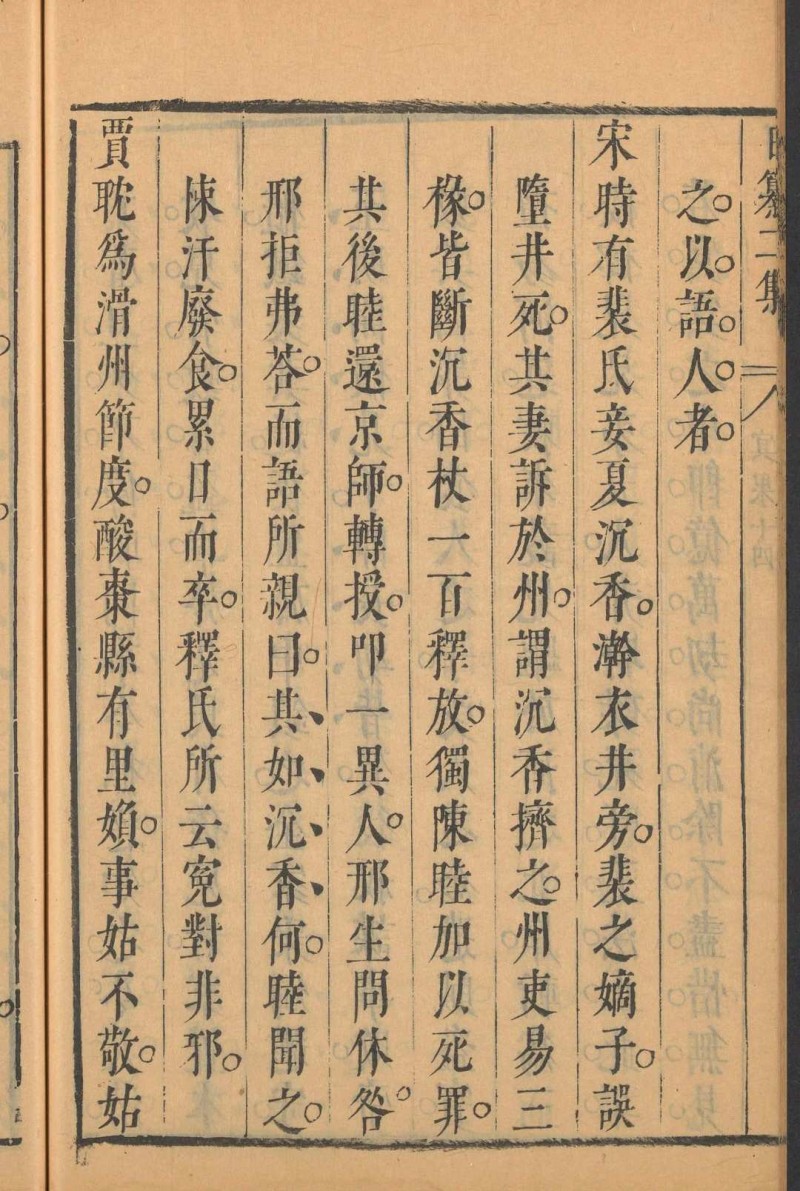 纂二集 八
之。以。語。人。者。
宋時有裴氏妾夏沉香。澣衣井旁。裴之嫡子。誤
墮井死。其妻訴於州。謂沉香擠之。州吏易三
椽。皆斷沉香杖一百釋放。獨陳睦加以死罪。
其後睦還京師。轉授。叩一異人。邢生問休咎。
邢拒弗荅。而語所親曰。其、如、沉、香、何。睦聞之。
悚汗廢食。累日而卒。釋氏所云寃對非邪。
賈耽爲滑州節度。酸棗縣有里媍。事姑不敬。姑